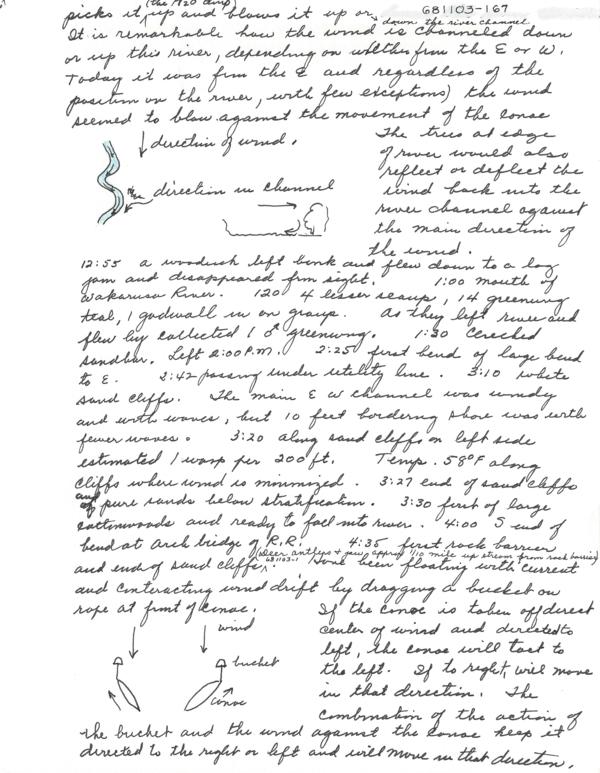 (the 120 amp)
681103-167
picks it up and blows it up or down the river channel
It is remarkable how the wind is channeled down
or up this river, depending on whether from the E or W.
Today it was from the E and regardless of the
position on the river, with few exceptions) the wind
seemed to blow against the movement of the canoe
direction of wind.
direction in channel
The trees at edge
of river would also
reflect or deflect the
wind back into the
river channel against
the main direction of
the wind.
12:55 a woodduck left bank and flew down to a log
jam and disappeared from sight. 1:00 mouth of
Wakarusa River. 120 4 lesser scaup, 14 greenwing
teal, 1 gadwall in on group. As they left river and
flew by collected 1 ♂ greenwing. 1:30 Checked
sandbar. Left 2:00 P.M. 2:25 first bend of large bend
to E. 2:42 passing under utility line. 3:10 white
sand cliffs. The main E W channel was windy
and with waves, but 10 feet bordering shore was with
fewer waves. 3:20 along sand cliffs on left side
estimated 1 wasp per 200 ft. Temp. 58°F along
cliffs where wind is minimized. 3:27 end of sand cliffs
and of pure sands below stratification. 3:30 first of large
cottonwoods and ready to fall into river. 4:00 S end of
bend at Arch bridge of R.R. 4:35 first rock barrier
(Deer antlers + jaw approx 1/10 mile up stream from rock barrier)
681103-1
and end of sand cliffs. Have been floating with current
and conteracting wind drift by dragging a bucket on
rope at front of canoe.
wind
bucket
canoe
If the canoe is taken off direct
center of wind and directed to
left, the canoe will tact to
the left. If to right, will move
in that direction. The
combination of the action of
the bucket and the wind against the canoe keep it
directed to the right or left and will move in that direction.